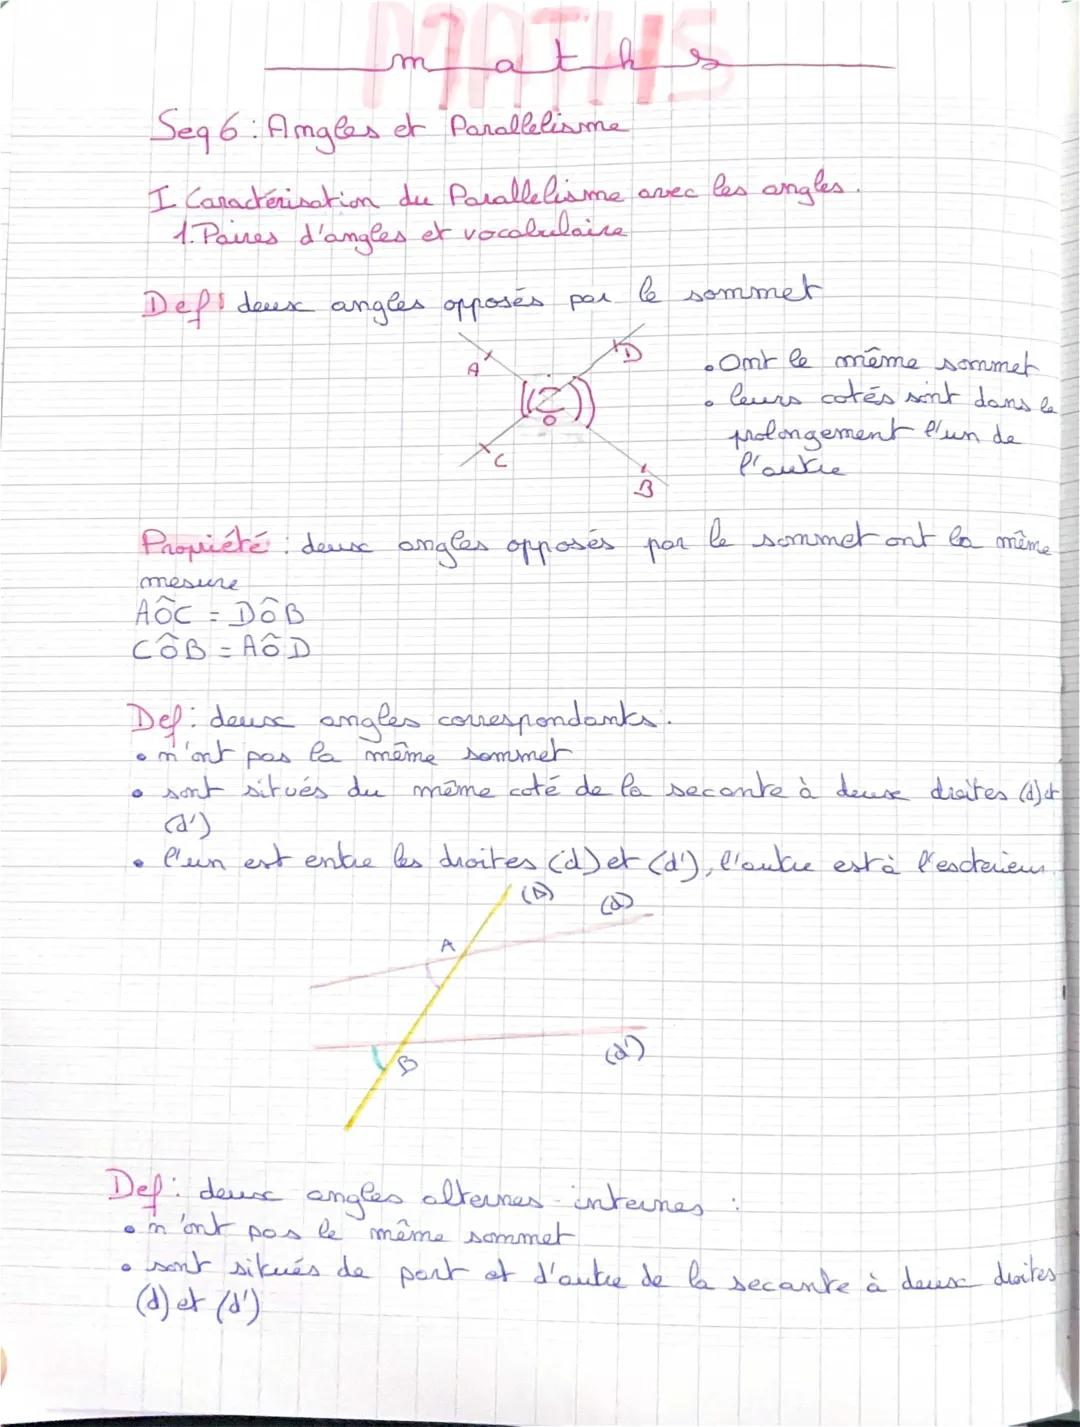 MATHS
maths
Seq 6 : Angles et Parallelisme
I Caractérisation du Parallelisme avec les angles.
1. Paires d'angles et vocabulaire
Def: deux angles opposés par le sommet
A
D
O
C
B
• Ont le même sommet
• leurs cotés sont dans le
prolongement l'un de
l'autre
Propriété : deux angles opposés par le sommet ont la même
mesure
AÔC = DÔB
CÔB = AÔD
Def : deux angles correspondants.
• n'ont pas la même sommet
• sont situés du même coté de la secante à deux droites (d) et
(d')
• l'un est entre les droites (d) et (d'), l'autre est à l'exterieur.
(Δ)
(d)
A
B
(d')
Def : deux angles alternes-internes :
• n'ont pas le même sommet
• sont situés de part et d'autre de la secante à deux droites
(d) et (d')